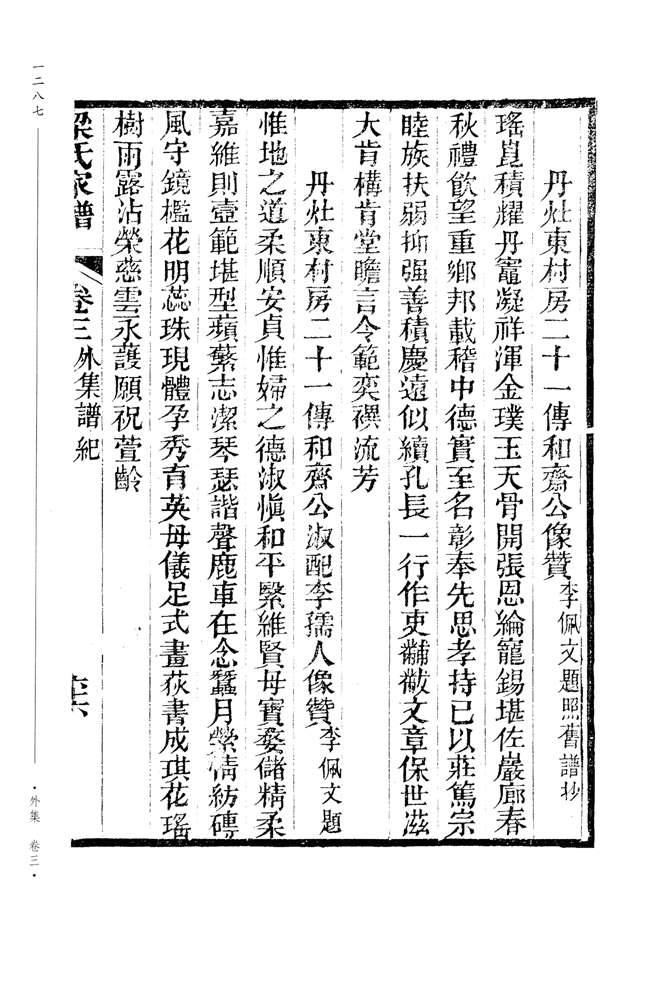 丹灶東村房二十一傳和齋公像贊李佩文題照舊譜抄
瑤崑積耀丹竈凝祥渾金璞玉天骨開張恩綸寵錫堪佐巖廊春
秋禮飲望重鄉邦載稽中德實至名彰奉先思孝持己以莊篤宗
睦族扶弱抑强善積慶遠似續孔長一行作吏黼黻文章保世滋
大肯構肯堂瞻言令範奕禩流芳
丹灶東村房二十一傳和齋公淑配李孺人像贊李佩文題
惟地之道柔順安貞惟婦之德淑愼和平繄維賢母寶婺儲精柔
嘉維則壼範堪型蘋蘩志潔琴瑟諧聲鹿車在念蠶月縈情紡磚
風守鏡檻花明蕊珠現體孕秀育英母儀足式畫荻書成琪花瑤
樹雨露沾榮慈雲永護願祝萱齡
梁氏家譜 卷三外集譜紀
一二八七
·外集 卷三·